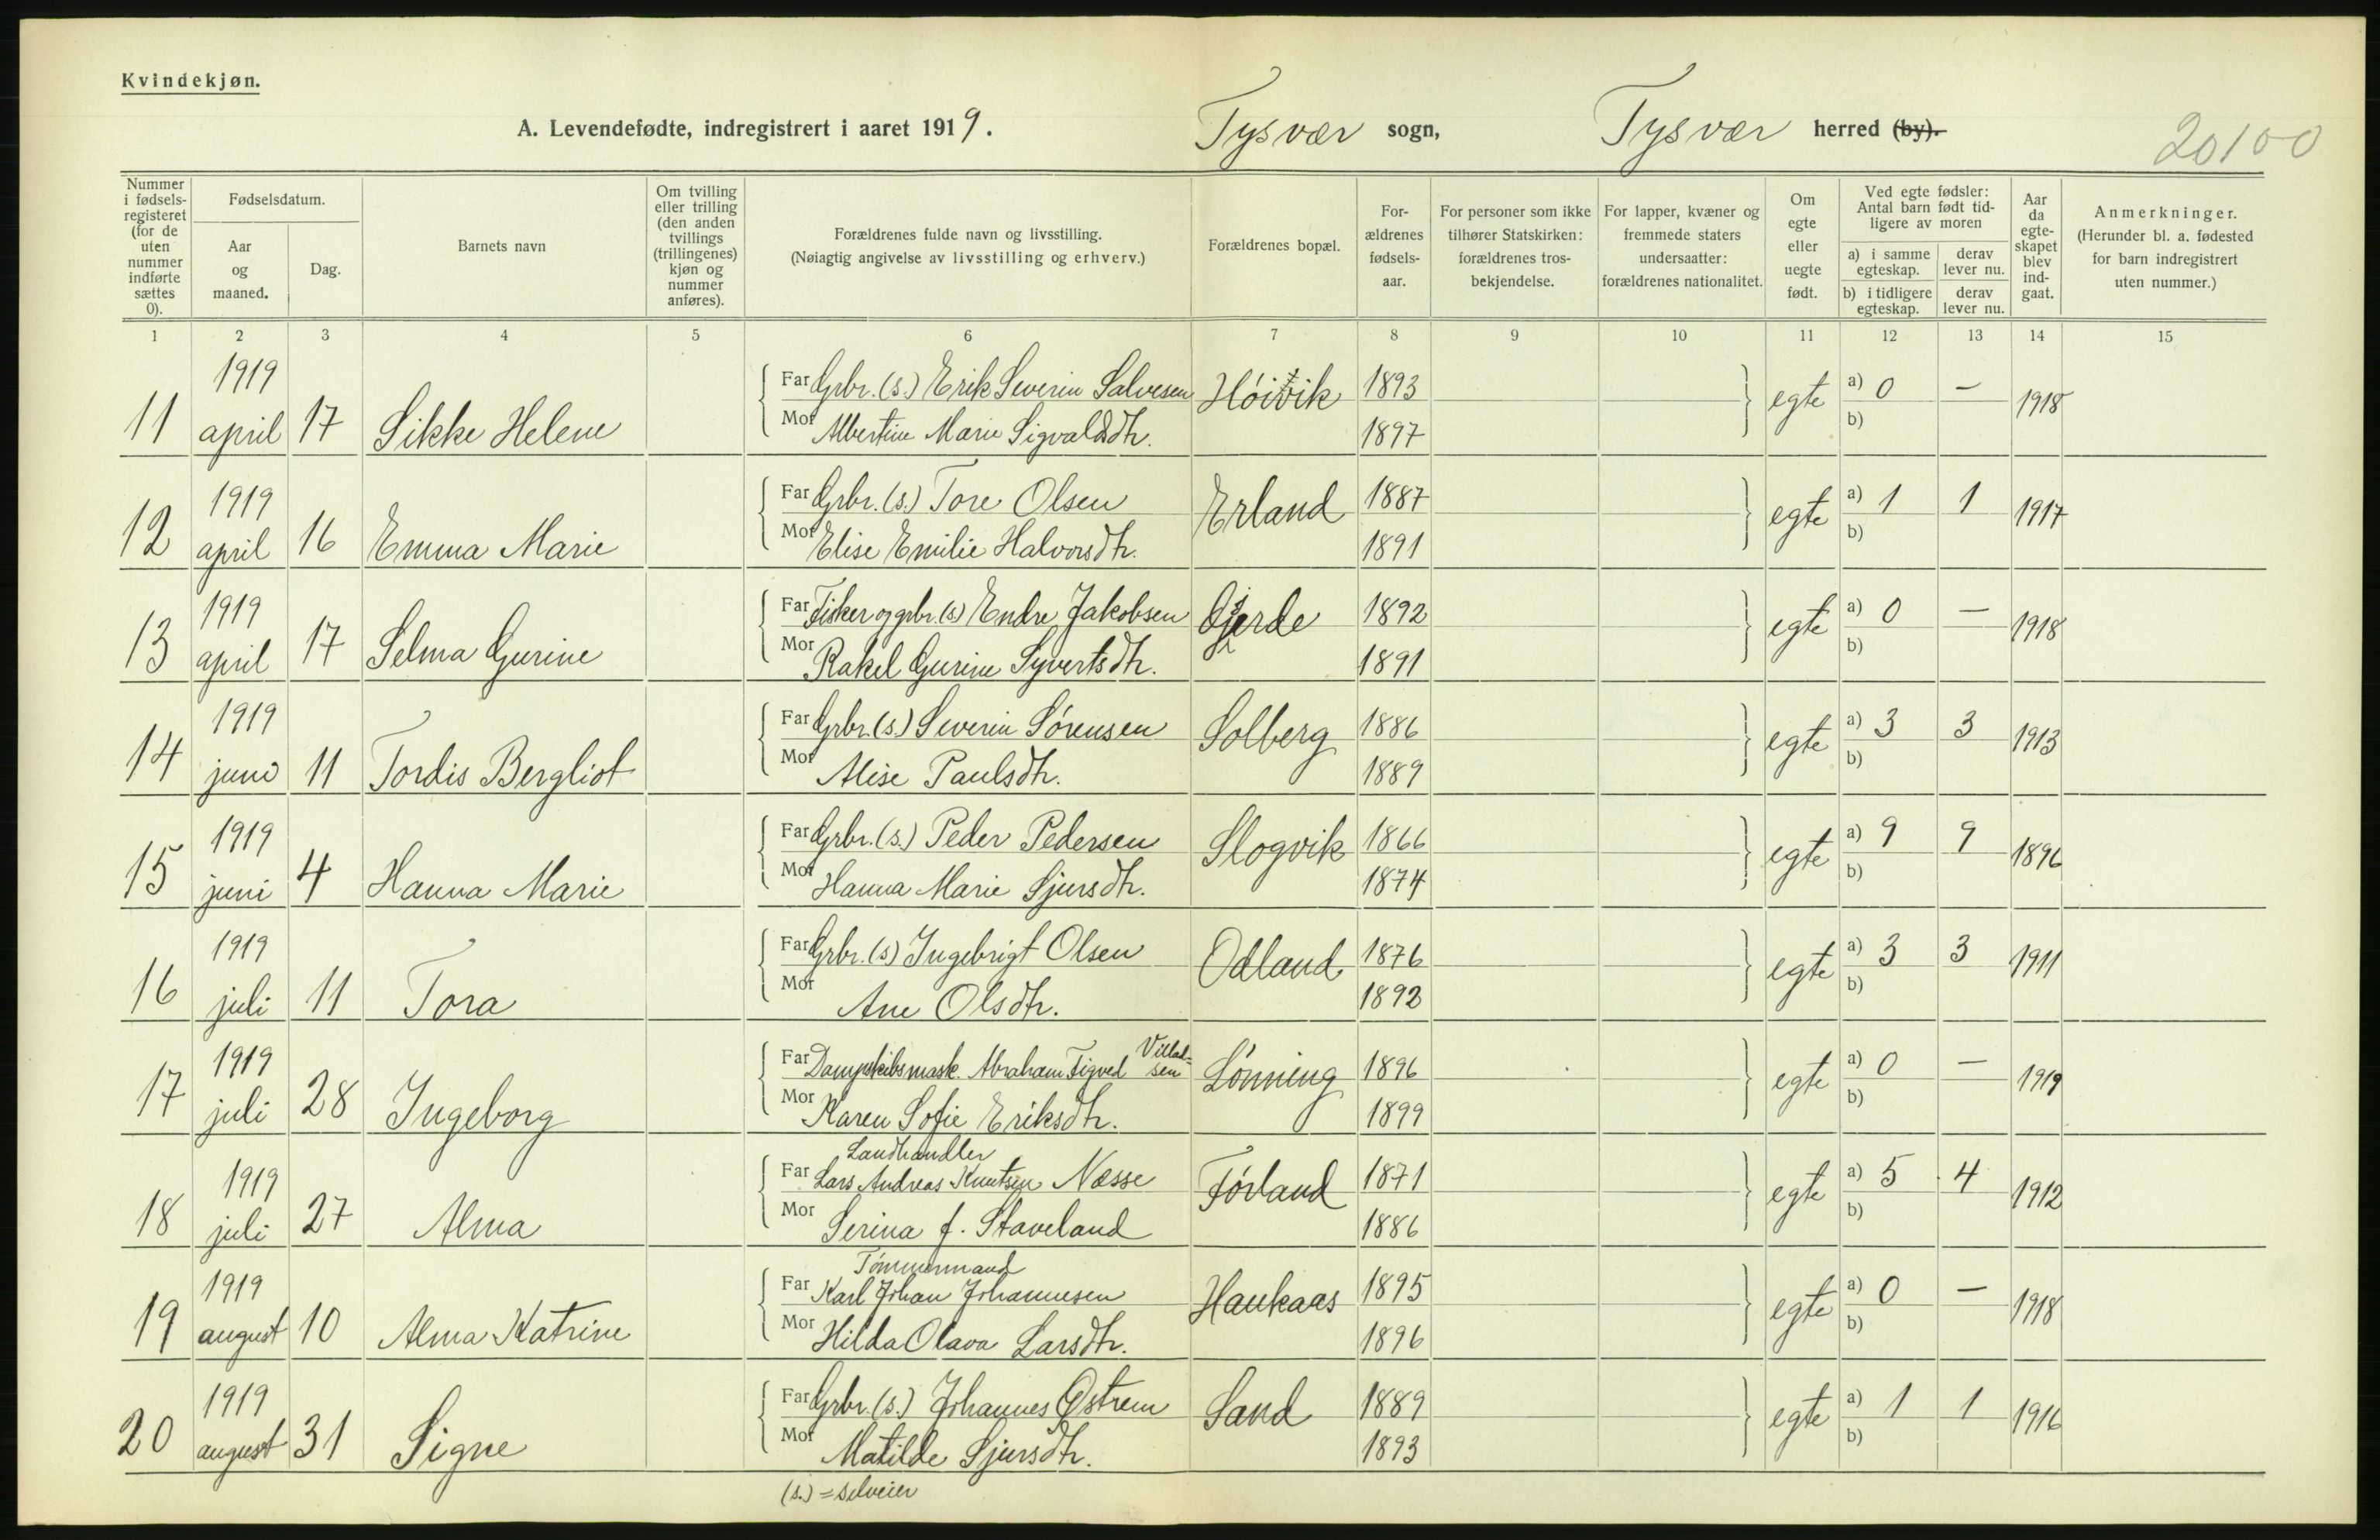 Kvindekjøn.
A. Levendefødte, indregistrert i aaret 1919. Tysvær sogn, Tysvær herred (by).
20100
Nummer i fødselsregisteret (for de uten nummer indførte sættes 0).
Fødselsdatum.
Aar og maaned.
Dag.
Barnets navn
Om tvilling eller trilling (den anden tvillings (trillingenes) kjøn og nummer anføres).
Forældrenes fulde navn og livsstilling.
(Nøiagtig angivelse av livsstilling og erhverv.)
Forældrenes bopæl.
Forældrenes fødselsaar.
For personer som ikke tilhører Statskirken: forældrenes trosbekjendelse.
For lapper, kvæner og fremmede staters undersaatter: forældrenes nationalitet.
Om egte eller uegte født.
Ved egte fødsler: Antal barn født tidligere av moren
a) i samme egteskap. derav lever nu.
b) i tidligere egteskap. derav lever nu.
Aar da egteskapet blev indgaat.
Anmerkninger.
(Herunder bl. a. fødested for barn indregistrert uten nummer.)
1 2 3 4 5 6 7 8 9 10 11 12 13 14 15
11 1919 april 17 Sikke Helene Far Grbr. (s.) Erik Severin Salvesen Høivik 1893 egte a) 0 — 1918
Mor Albertine Marie Sigvaldsdtr. 1897 b)
12 1919 april 16 Emma Marie Far Grbr. (s.) Tore Olsen Erland 1887 egte a) 1 1 1917
Mor Elise Emilie Halvorsdtr. 1891 b)
13 1919 april 17 Selma Gurine Far Fisker og grbr. (s) Endre Jakobsen Gjerde 1892 egte a) 0 — 1918
Mor Rakel Gurine Syvertsdtr. 1891 b)
14 1919 juni 11 Tordis Bergliot Far Grbr. (s.) Severin Sørensen Solberg 1886 egte a) 3 3 1913
Mor Alise Paulsdtr. 1889 b)
15 1919 juni 4 Hanna Marie Far Grbr. (s.) Peder Pedersen Slogvik 1866 egte a) 9 9 1896
Mor Hanna Marie Sjursdtr. 1874 b)
16 1919 juli 11 Tora Far Grbr. (s) Ingebrigt Olsen Odland 1876 egte a) 3 3 1911
Mor Ane Olsdtr. 1892 b)
17 1919 juli 28 Ingeborg Far Dampskibsmask. Abraham Tigved Villadsen Lønning 1896 egte a) 0 — 1919
Mor Karen Sofie Eriksdtr. 1899 b)
18 1919 juli 27 Alma Landhandler
Far Lars Andreas Knutsen Næsse Førland 1871 egte a) 5 4 1912
Mor Serina f. Staveland 1886 b)
19 1919 august 10 Alma Katrine Tømmermand
Far Karl Johan Johannesen Haukaas 1895 egte a) 0 — 1918
Mor Hilda Olava Larsdtr. 1896 b)
20 1919 august 31 Signe Far Grbr. (s.) Johannes Østrem Sand 1889 egte a) 1 1 1916
Mor Matilde Sjursdtr. 1893 b)
(s.) = selveier